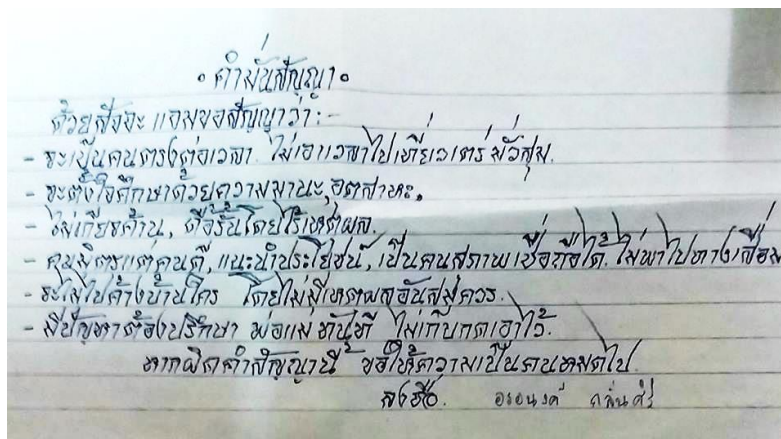 • คำมั่นสัญญา •
ด้วยสัจจะ แอมขอสัญญาว่า :-
- จะเป็นคนตรงต่อเวลา. ไม่เอาเวลาไปเที่ยวเตร่ มั่วสุม.
- จะตั้งใจศึกษาด้วยความมานะ, อุตสาหะ.
- ไม่เกียจคร้าน, ดื้อรั้นโดยไร้เหตุผล.
- คบมิตรแต่คนดี, แนะนำประโยชน์, เป็นคนสุภาพเชื่อถือได้. ไม่พาไปทางเสื่อม
- จะไม่ไปค้างบ้านใคร โดยไม่มีเหตุผลอันสมควร.
- มีปัญหาต้องปรึกษา พ่อแม่ ทันที ไม่เก็บกดเอาไว้.
หากผิดคำสัญญานี้ ขอให้ความเป็นคนหมดไป.
ลงชื่อ. อรอนงค์